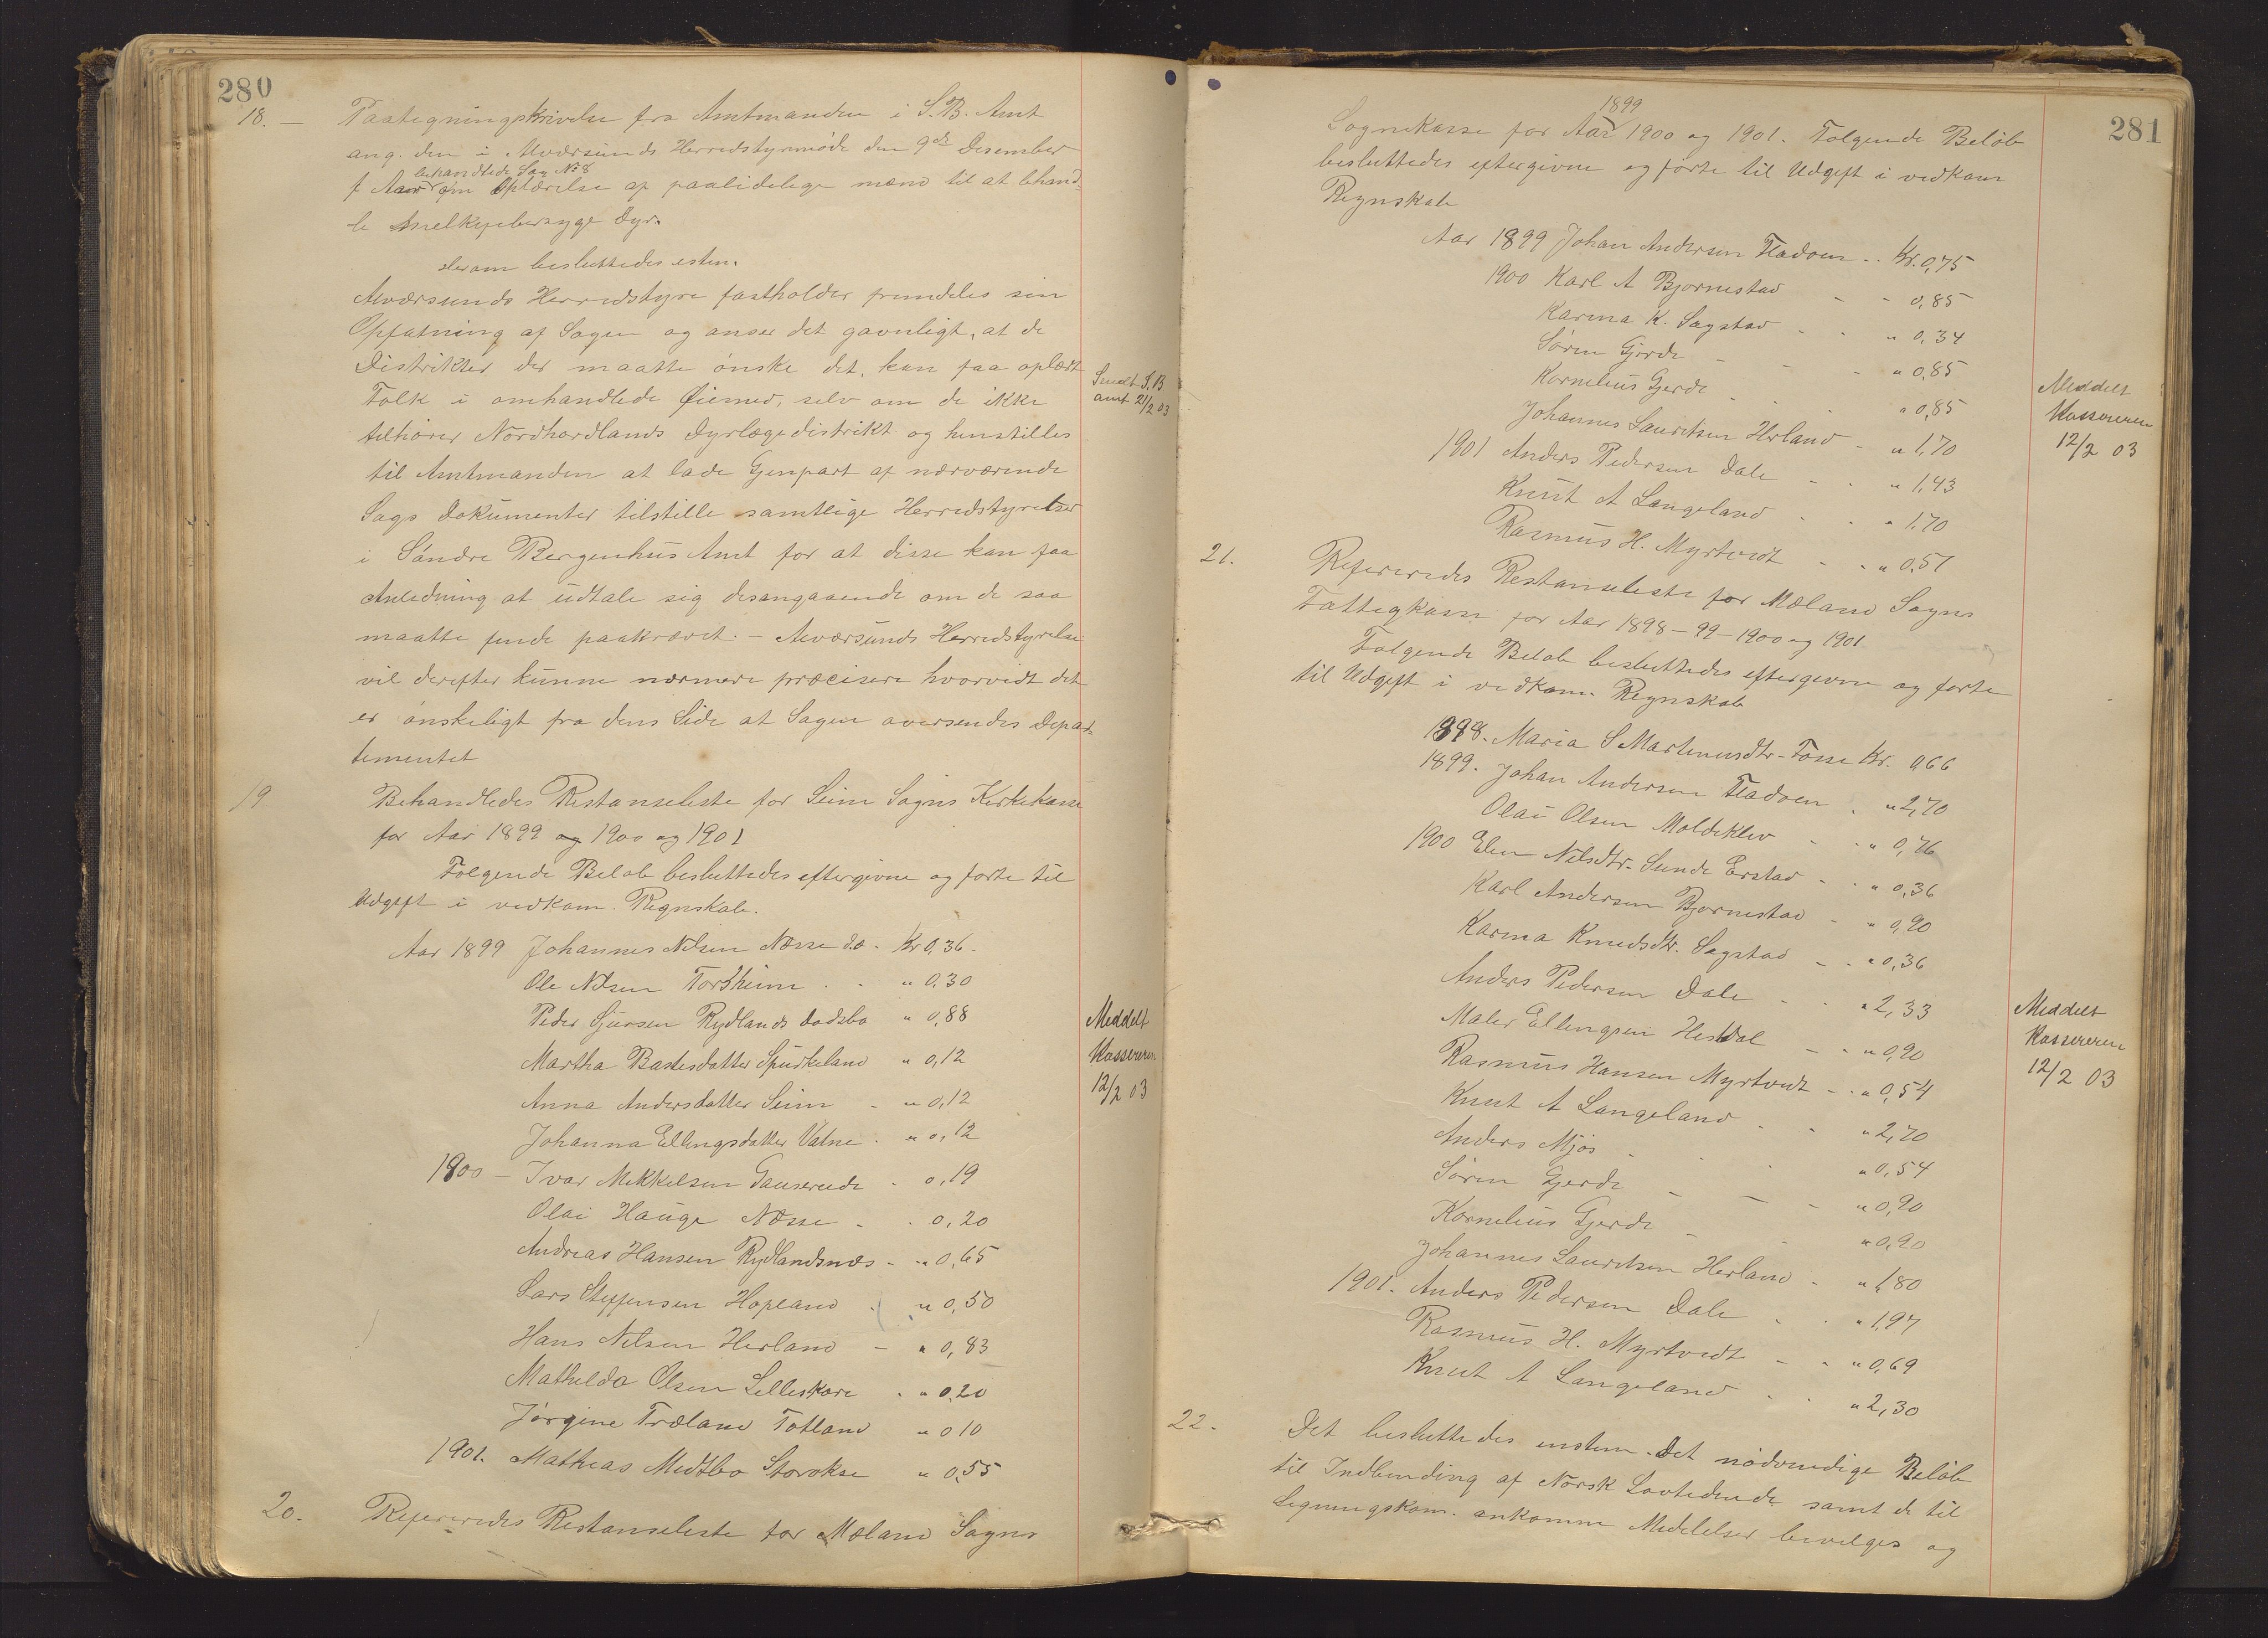 280
18. — Paategningsskrivelse fra Amtmanden i S.B. Amt
ang. den i Alværsunds Herredstyremöde den 9de Desember
behandlede Sag No 8
f Aar om Oplærelse af paalidelige mænd til at behand-
le melkefebersyge Dyr.
Herom besluttedes esten.
Alværsunds Herredstyre fastholder fremdeles sin
Opfatning af Sagen og anser det gavnligt, at de
Distrikter der maatte önske det, kan faa oplært
Folk i omhandlede Öiemed, selv om de ikke
tilhörer Nordhordlands Dyrlægedistrikt og henstilles
til Amtmanden at lade Gjenpart af nærværende
Sags Dokumenter tilstille samtlige Herredstyrelser
i Söndre Bergenhus Amt for at disse kan faa
Anledning at udtale sig desangaaende om de saa
maatte finde paakrævet. — Alværsunds Herredstyrelse
vil derefter kunne nærmere præcisere hvorvidt det
er önskeligt fra dens Side at Sagen oversendes Depar-
tementet
Sendt S.B
amt 21/2 03
19 Behandledes Restanseliste for Seim Sogns Kirkekasse
for Aar 1899 og 1900 og 1901
Folgende Belob besluttedes eftergivne og forte til
Udgift i vedkom. Regnskab.
Aar 1899 Johannes Nilsen Næsse d.o. Kr 0,36.
Ole Nilsen Torsheim . . " 0,30
Peder Sjursen Rydlands dødsbo " 0,88
Martha Bastesdatter Spurkeland " 0,12
Anna Andersdatter Seim - " 0,12
Johanna Ellingsdatter Vatne . " 0,12
1900 — Ivar Mikkelsen Gauserende - 0,19
Olai Hauge Næsse - . 0,20
Andreas Hansen Rydlandsnæs - " 0,65
Lars Steffensen Hopland . " 0,50
Hans Nilsen Herland - " 0,83
Mathilda Olsen Lilleskare . " 0,20
Jörgine Træland Totland " 0 10
1901. Mathias Midtbø Storokse " 0,55
Meddelt
Kassereren
12/2 03
20. Refereredes Restanseliste for Mæland Sogns
281
1899
Sognekasse for Aar 1900 og 1901. Folgende Belöb
besluttedes eftergivne og förte til Udgift i vedkom
Regnskab
Aar 1899 Johan Andersen Fladoen .. Kr. 0,75
1900 Karl A Bjornestad - - 0,85
Karina K. Sagstad - . " 0,34
Sören Gjerde - - " 0,85
Kornelius Gjerde . . . " 0,85
Johannes Lauritsen Herland - " 1,70
1901 Anders Pedersen Dale - . " 1,43
Knut A Langeland . . " 1,70
Rasmus H. Myrtvedt - . " 0,51
Meddelt
Kassereren
12/2 03
21. Refereredes Restanseliste for Mæland Sogns
Fattigkasse for Aar 1898 — 99 — 1900 og 1901
Folgende Belob besluttedes eftergivne og forte
til Udgift i vedkom. Regnskab
1898. Maria S Martinusdtr. Fosse Kr. 0,66
1899. Johan Andersen Fladoen . " 2,70
Olai Olsen Moldeklev - . " 0,76
1900 Elen Nilsdtr. Sunde Erstad - . " 0,36
Karl Andersen Bjornestad - " 0,90
Karina Knudsdtr. Sagstad - . " 0,36
Anders Pedersen Dale - . " 2,33
Maler Ellingsen Hesdal - . " 0,90
Rasmus Hansen Myrtvedt - . " 0,54
Knut A Langeland . . " 2,70
Anders Mjös - . . " 0,54
Sören Gjerde - - - " 0,90
Kornelius Gjerde - - " 0,90
Johannes Lauritsen Herland . " 1,80
1901. Anders Pedersen Dale . . " 1,97
Rasmus H. Myrtvedt - . " 0,69
Knut A Langeland . . " 2,30
Meddelt
Kassereren
12/2 03
22. Det besluttedes enstem. Det nödvendige Belöb
til Indbinding af Norsk Lovtidende samt de til
Ligningskom. ankomne Medelelser bevilges og